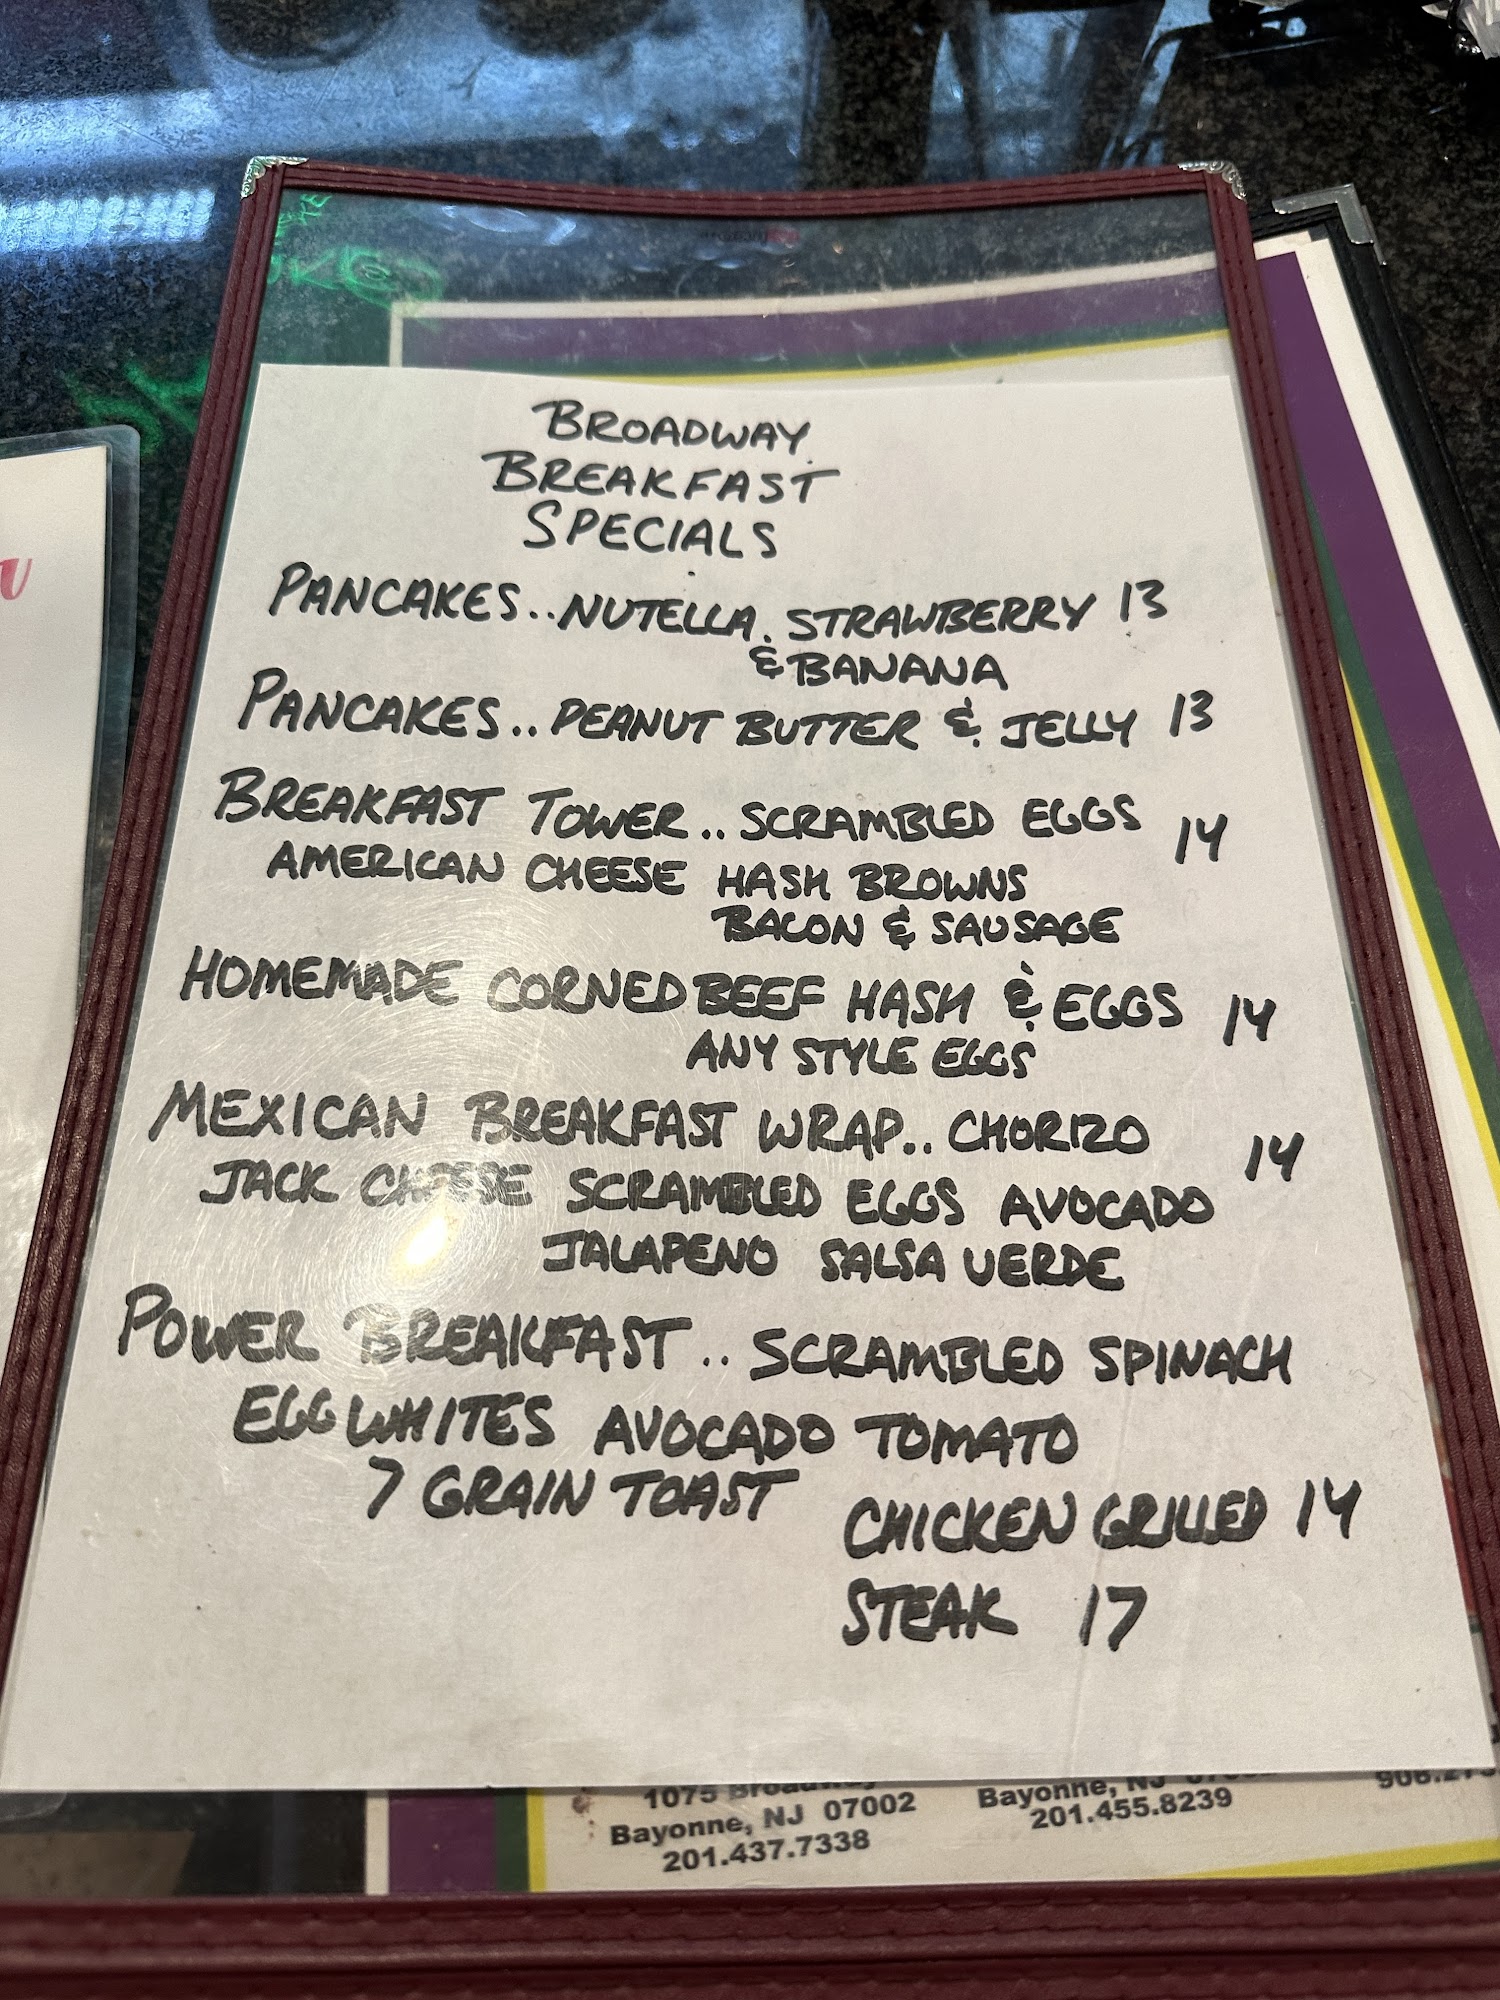 BROADWAY
BREAKFAST
SPECIALS
PANCAKES.. NUTELLA, STRAWBERRY 13
& BANANA
PANCAKES.. PEANUT BUTTER & JELLY 13
BREAKFAST TOWER.. SCRAMBLED EGGS 14
AMERICAN CHEESE HASH BROWNS
BACON & SAUSAGE
HOMEMADE CORNED BEEF HASH & EGGS 14
ANY STYLE EGGS
MEXICAN BREAKFAST WRAP.. CHORIZO 14
JACK CHEESE SCRAMBLED EGGS AVOCADO
JALAPENO SALSA VERDE
POWER BREAKFAST.. SCRAMBLED SPINACH
EGG WHITES AVOCADO TOMATO
7 GRAIN TOAST
CHICKEN GRILLED 14
STEAK 17
1075 Broadway
Bayonne, NJ 07002
201.437.7338
Bayonne, NJ
201.455.8239